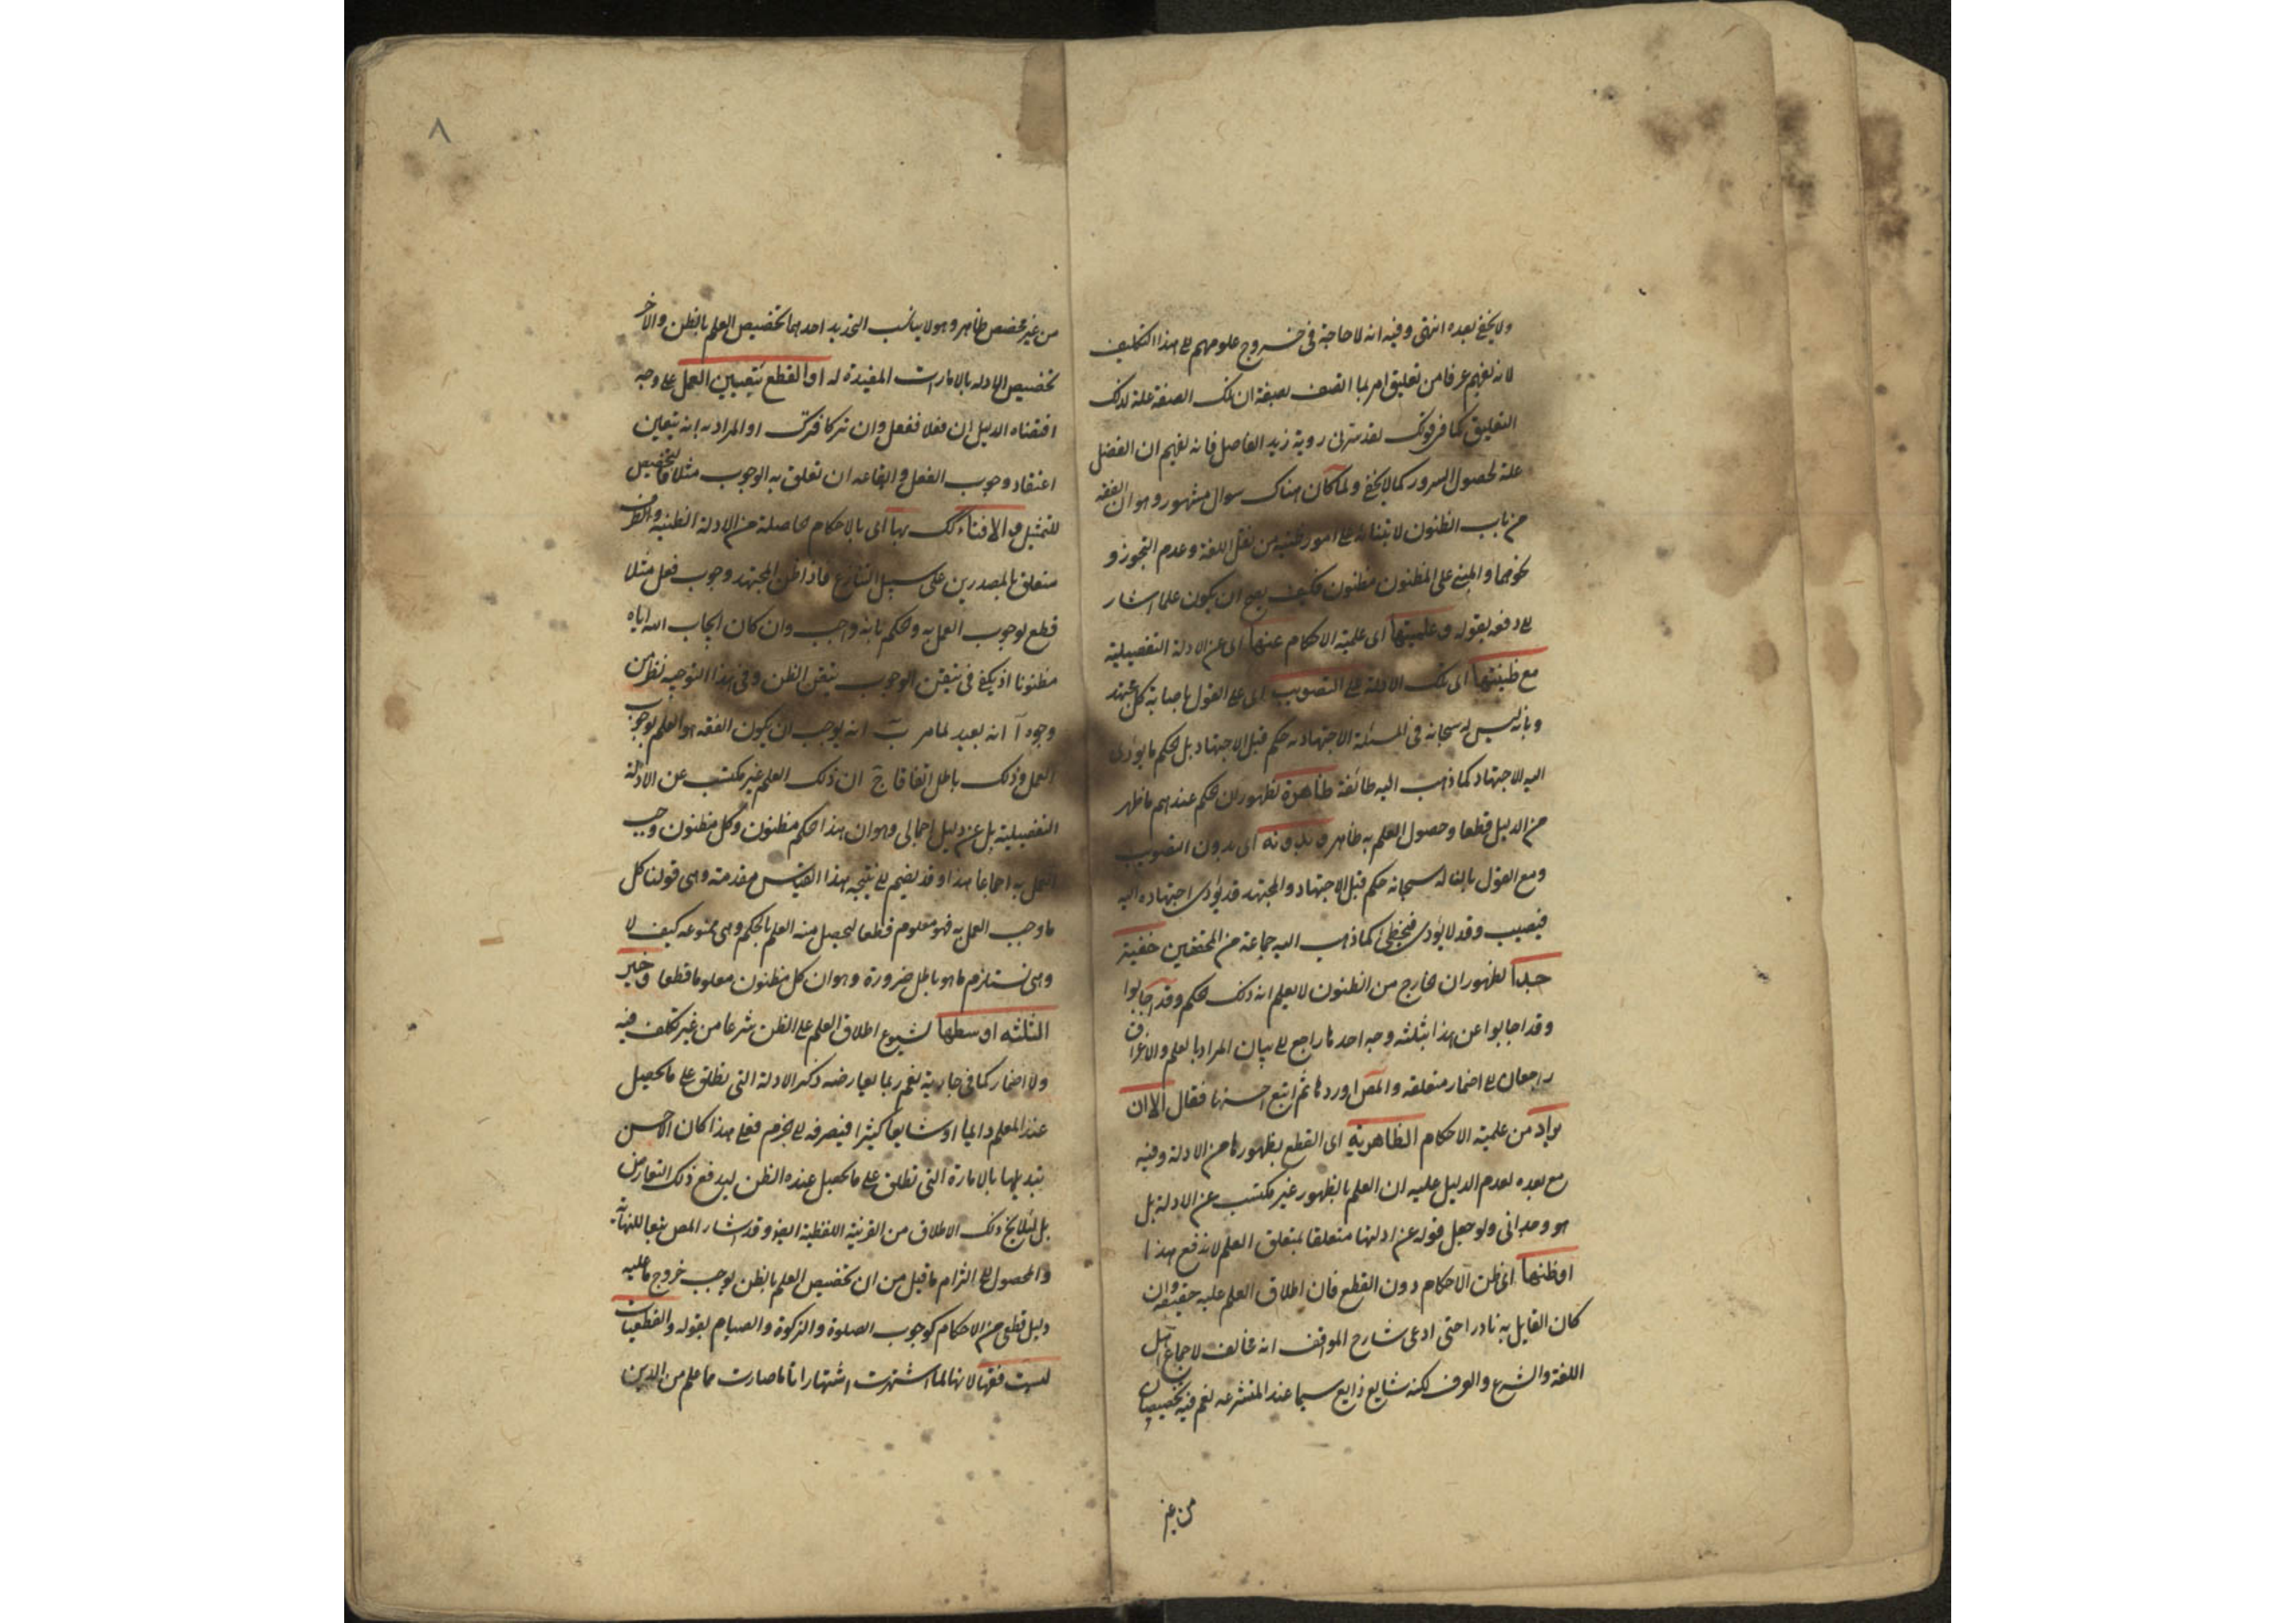 ولا يخفى بعده انتهى وفيه انه لا حاجة فى خروج علومهم لى هذا التكليف
لانه يفهم عرفا من تعليق امر بما اتصف بصفة ان تلك الصفة علة لذلك
التعليق كما فى قولك لقد سرنى روية زيد الفاضل فانه يفهم ان الفضل
علة لحصول السرور كما لا يخفى ولما كان هناك سوال مشهور وهو ان الفقه
من باب الظنون لابتنائه على امور ظنية من نقل اللغة وعدم التجوز و
نحوهما والمبنى على المظنون مظنون فكيف يصح ان يكون علما اشار
لى دفعه بقوله وعلميتها اى علمية الاحكام عنها اى عن الادلة التفصيلية
مع ظنيتها اى تلك الادلة على التصويب اى على القول باصابة كل مجتهد
وبانه ليس له سبحانه فى المسئلة الاجتهادية حكم قبل الاجتهاد بل الحكم ما يؤدى
اليه الاجتهاد كما ذهب اليه طائفة ظاهرة لظهور ان الحكم عندهم ما ظهر
من الدليل قطعا وحصول العلم به ظاهر وبدونه اى بدون التصويب
ومع القول بان له سبحانه حكم قبل الاجتهاد والمجتهد قد يؤدى اجتهاده اليه
فيصيب وقد لا يؤدى فيخطئ كما ذهب اليه جماعة من المحققين خفية
جدا لظهور ان الخارج من الظنون لا يعلم انه ذلك الحكم وقد اجابوا
وقد اجابوا عن هذا بثلثة وجه احدها راجع لى بيان المراد بالعلم والاخران
راجعان لى اضمار متعلقه والمص اوردها ثم اتبع احسنها فقال الا ان
يراد من علمية الاحكام الظاهرية اى القطع بظهورها من الادلة وفيه
مع بعده لعدم الدليل عليه ان العلم بالظهور غير مكتسب عن الادلة بل
هو وجدانى ولو جعل قوله عن ادلتها متعلقا بمتعلق العلم لاندفع هذا
او ظنها اى ظن الاحكام دون القطع فان اطلاق العلم عليه حقيقة وان
كان القايل به نادرا حتى ادعى شارح المواقف انه مخالف لاجماع اهل
اللغة والشرع والعرف لكنه شايع ذايع سيما عند المتشرعه نعم فيه تخصيصان
من غير
٨
من غير مخصص ظاهر وهو لا يناسب التحديد احدهما تخصيص العلم بالظن والاخر
تخصيص الادلة بالامارات المفيدة له او القطع بتعيين العمل على وجه
اقتضاه الدليل ان فعلا ففعل وان تركا فترك او المراد به انه يتعين
اعتقاد وجوب الفعل وايقاعه ان تعلق به الوجوب مثلا فالتخصيص
للتمثيل والافتاء لك بها اى بالاحكام الحاصلة من الادلة الظنية والظرف
متعلق بالمصدرين على سبيل التنازع فاذا ظن المجتهد وجوب فعل مثلا
قطع بوجوب العمل به والحكم بانه واجب وان كان ايجاب الله اياه
مظنونا اذ يكفى فى تيقن الوجوب تيقن الظن وفى هذا التوجيه نظر من
وجوه آ انه بعيد لما مر ب انه يوجب ان يكون الفقه هو العلم بوجوب
العمل وذلك باطل اتفاقا ج ان ذلك العلم غير مكتسب عن الادلة
التفصيلية بل عن دليل اجمالى وهو ان هذا الحكم مظنون وكل مظنون وجب
العمل به اجماعا هذا وقد يضم لى نتيجة هذا القياس مقدمته وهى قولنا كل
ما وجب العمل به فهو معلوم قطعا ليحصل منه العلم بالحكم وهى ممنوعه كيف لا
وهى تستلزم ما هو باطل ضرورة وهو ان كل مظنون معلوما قطعا وخير
الثلثه اوسطها لشيوع اطلاق العلم على الظن شرعا من غير تكلف فيه
ولا اضمار كما فى جاريه نعم ربما يعارضه ذكر الادلة التى يطلق على ما يحصل
عنه العلم دايما او شايعا كثيرا فيصرفه لى الجزم فعلى هذا كان الاحسن
تبديلها بالامارة التى تطلق على ما يحصل عنده الظن ليدفع ذلك التعارض
بل لئلا يخ ذلك الاطلاق من القرنية اللفظية ايضا وقد اشار المص تبعا للنهاية
والمحصول لى التزام ما قيل من ان تخصيص العلم بالظن يوجب خروج ما عليه
دليل قطعى من الاحكام كوجوب الصلوة والزكوة والصيام بقوله والقطعيات
ليست فقها لانها لما اشتهرت اشتهارا تاما صارت مما علم من الدين